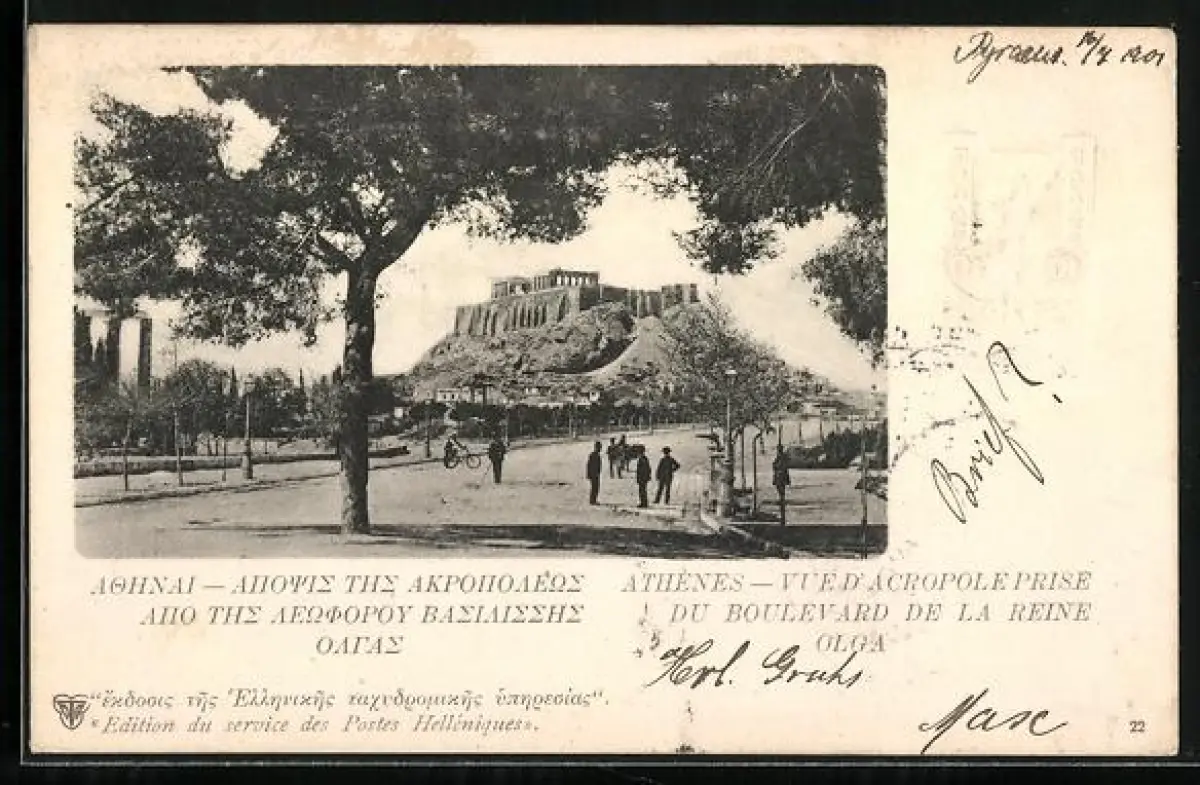 Pyraeus. 1901
ΑΘΗΝΑΙ — ΑΠΟΨΙΣ ΤΗΣ ΑΚΡΟΠΟΛΕΩΣ
ΑΠΟ ΤΗΣ ΛΕΩΦΟΡΟΥ ΒΑΣΙΛΙΣΣΗΣ
ΟΛΓΑΣ
ATHÈNES — VUE D'ACROPOLE PRISE
DU BOULEVARD DE LA REINE
OLGA
Brief?
Herzl. Gruhs
Max
“ἔκδοσις τῆς Ἑλληνικῆς ταχυδρομικῆς ὑπηρεσίας“.
“Edition du service des Postes Helléniques».
22